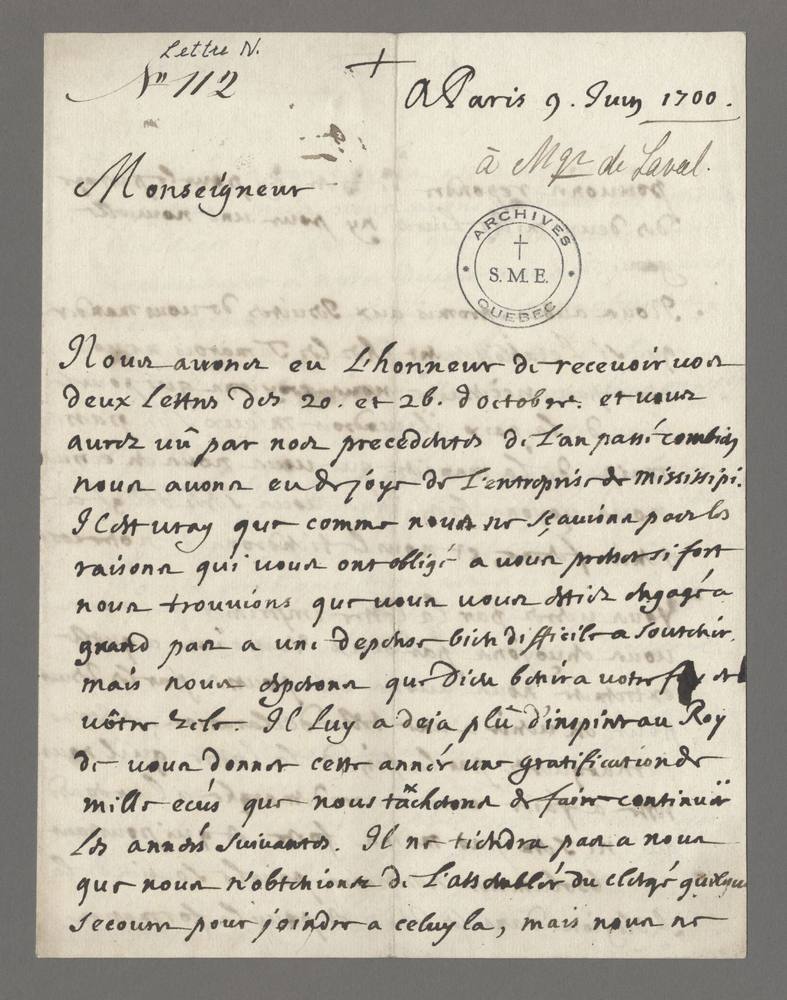 Lettre N.
N° 112
A Paris 9. Juin 1700.
à Mgr de Laval.
Monseigneur
ARCHIVES
S. M. E.
QUEBEC
Nous avons eu L'honneur de recevoir vos
deux Lettres des 20. et 26. d'octobre. et vous
aurez vû par nos precedentes de L'an passé combien
nous avons eu de joye de L'entreprise de Mississipi.
Il est vray que comme nous ne sçavions pas les
raisons qui vous ont obligé a vous presser si fort
nous trouvions que vous vous etiez engagé a
grand pas a une depense bien difficile a soutenir.
mais nous esperons que Dieu benira votre foy et
vôtre zele. Il Luy a deja plû d'inspirer au Roy
de vous donner cette année une gratification de
mille ecûs que nous tâcherons de faire continuër
Les années suivantes. Il ne tiendra pas a nous
que nous n'obtenions de L'assemblée du clergé quelque
secours pour joindre a celuy la, mais nous ne